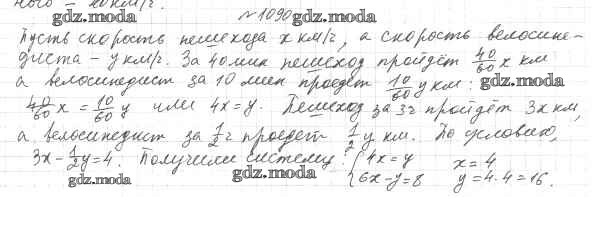 ного – 20 км/ч.
gdz.moda №1090 gdz.moda
Пусть скорость пешехода x км/ч, а скорость велосипе-
диста – y км/ч. За 40 мин пешеход пройдёт 40/60 x км
а велосипедист за 10 мин проедет 10/60 y км: gdz.moda
40/60 x = 10/60 y или 4x = y. Пешеход за 3ч пройдёт 3x км,
а велосипедист за 1/2 ч проедет 1/2 y км. По условию,
3x - 1/2 y = 4. Получили систему: { 4x = y x = 4
gdz.moda gdz.moda { 6x - y = 8 y = 4·4 = 16.